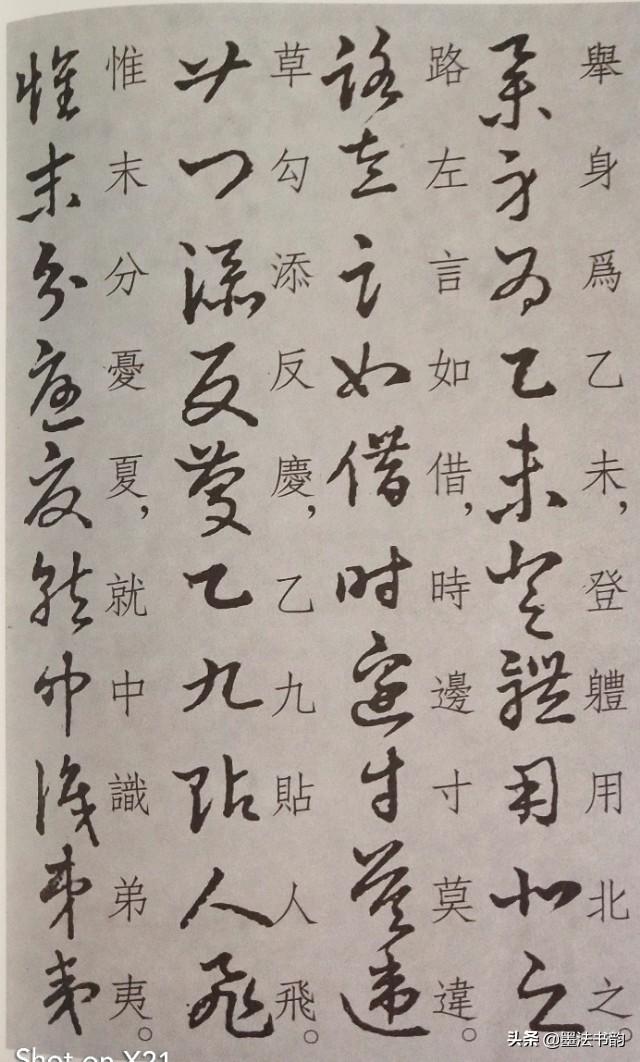 舉身爲乙未，登體用北之。
路左言如借，時邊寸莫違。
草勾添反慶，乙九貼人飛。
惟末分憂夏，就中識弟夷。
头条 @墨法书韵
Shot on X21